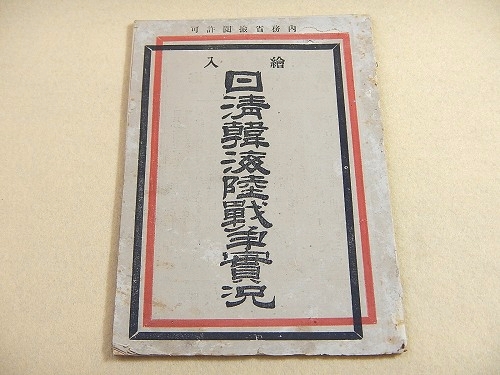 内務省檢閲許可
繪入
日清韓海陸戰争實況